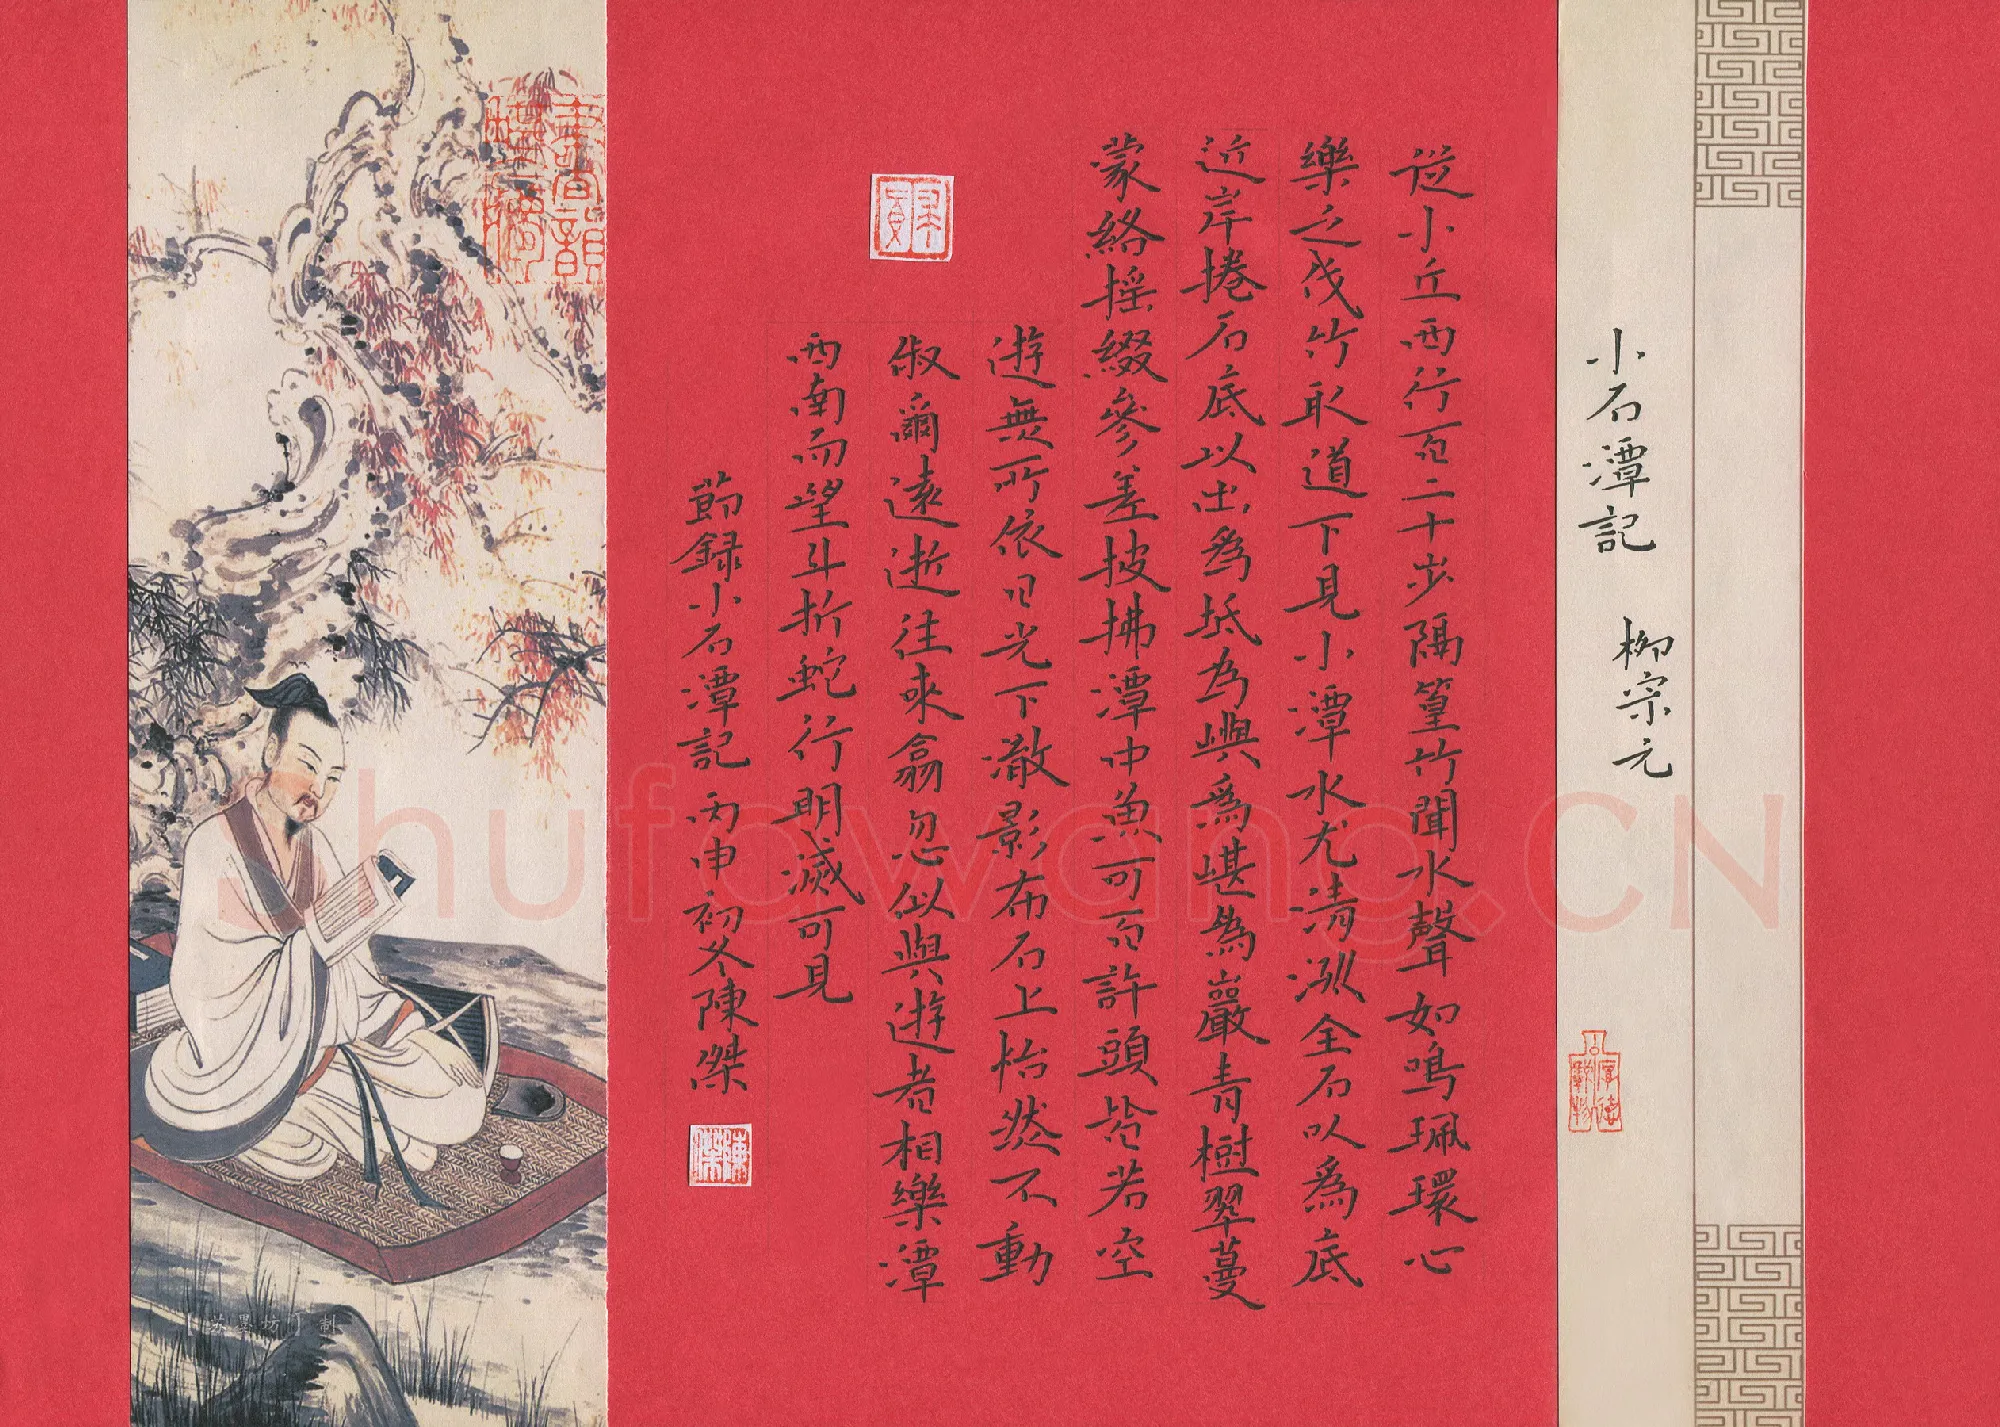 小石潭記 柳宗元
從小丘西行百二十步隔篁竹聞水聲如鳴珮環心
樂之伐竹取道下見小潭水尤清洌全石以為底
近岸捲石底以出為坻為嶼為嵁為巖青樹翠蔓
蒙絡摇綴參差披拂潭中魚可百許頭皆若空
遊無所依日光下澈影布石上怡然不動
俶爾遠逝往來翕忽似與遊者相樂潭
西南而望斗折蛇行明滅可見
節録小石潭記丙申初冬陳傑
陳傑
厚德載物
shufawang.CN
【苏墨坊】制